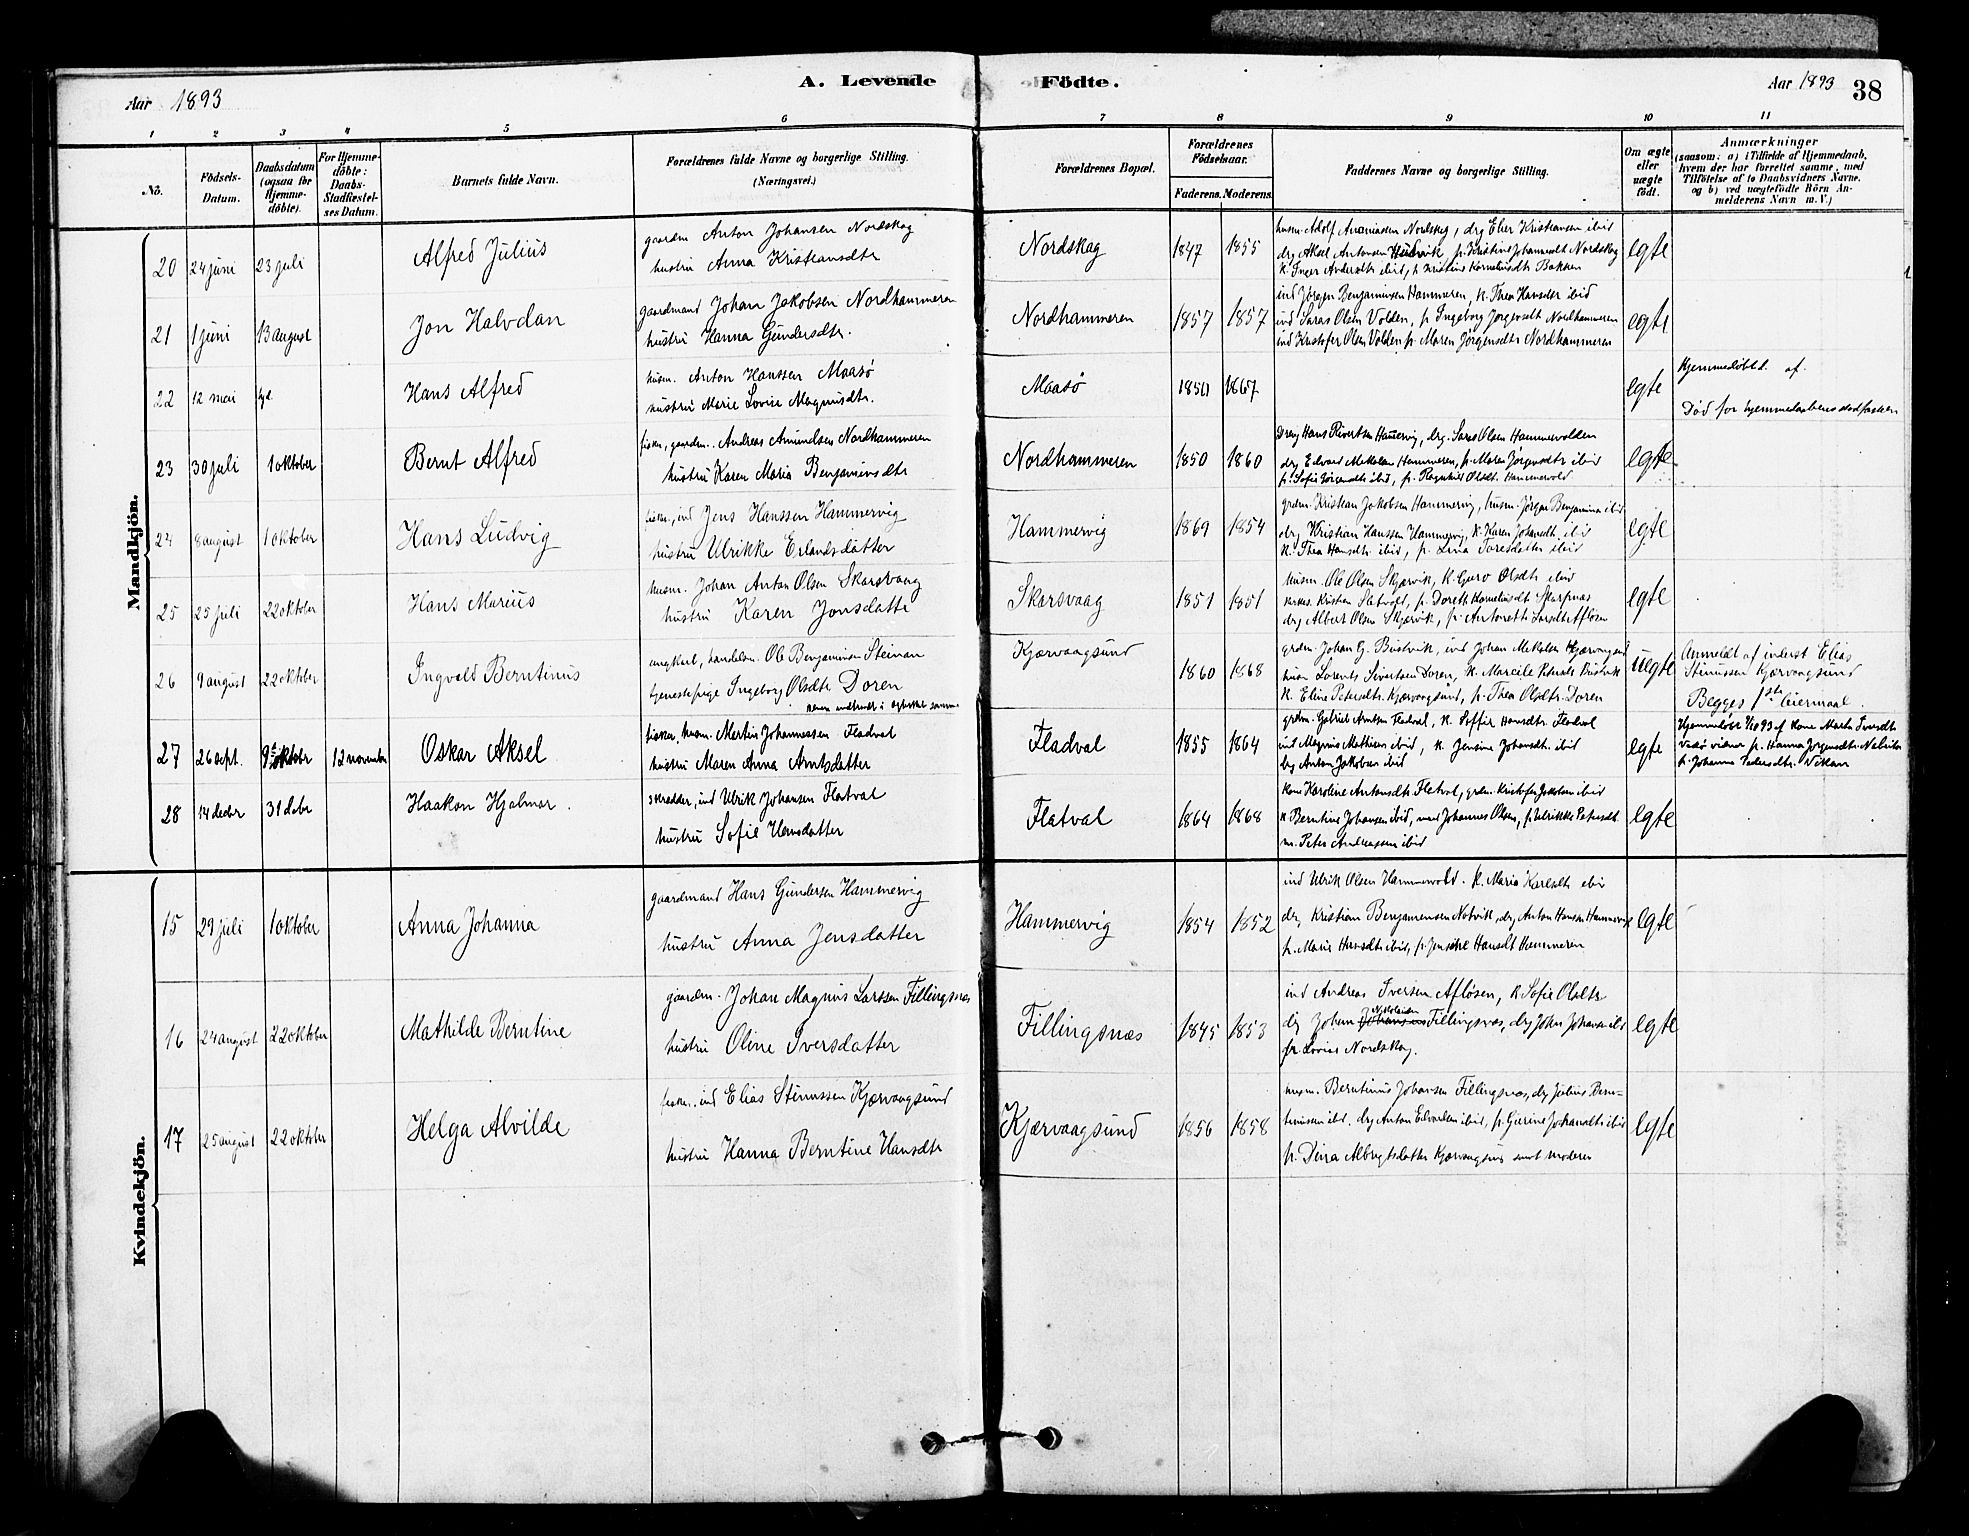 A. Levende Födte.
Aar 1893
Aar 1893 38
1 2 3 4 5 6 7 8 9 10 11
No.
Födsels-Datum.
Daabsdatum (ogsaa for Hjemme-döbte).
For Hjemme-döbte: Daabs-Stadfæstel-ses Datum.
Barnets fulde Navn.
Forældrenes fulde Navne og borgerlige Stilling. (Næringsvei.)
Forældrenes Bopæl.
Forældrenes Födselsaar.
Faderens. Moderens.
Faddernes Navne og borgerlige Stilling.
Om ægte eller uægte födt.
Anmærkninger
(saasom: a) i Tilfælde af Hjemmedaab,
hvem der har forrettet samme, med
Tilföielse af to Daabsvidners Navne,
og b) ved uægtefödte Börn An-
melderens Navn m. V.)
Mandkjön.
20 24 juni 23 juli Alfred Julius
gaardm Anton Johansen Nordskag
hustru Anna Kristiansdtr
Nordskag 1847 1855
husm Adolf Ananiassen Nordskag, drg Eber Kristiansen ibid
drg Aksel Antonsen p. Kristine Johannesdt Nordskag
k. Inger Andersdtr ibid, Kristine Kornelinsdtr Bakken
egte
21 1 juni 13 august Jon Halvdan
gaardmand Johan Jakobsen Nordhammeren
hustru Hanna Gundersdtr.
Nordhammeren 1857 1857
ind Jørgen Benjaminsen Hammeren, k. Thea Hansdtr ibid
ind Saras Olsen Volden, p. Ingeborg Jørgensdt Nordhammeren
ind Kristofer Olsen Volden p. Maren Jørgensdtr Nordhammeren
egte
22 12 mai Hans Alfred
husm. Anton Hanssen Maasø
hustru Marie Lovise Magnusdtr.
Maasø 1850 1867
egte
Hjemmedøbt af
Død før hjemmedaabens stadfæstelse
23 30 juli 1 oktober Bernt Alfred
fisker, gaardm. Andreas Amundsen Nordhammeren
hustru Karen Maria Benjaminsdtr
Nordhammeren 1850 1860
Drg Hans Sivertsen Hammervig, drg. Saras Olsen Hammervolden
drg Edvard Mekalsen Hammeren, p. Maren Jørgensdtr ibid
p. Sofie Jørgensdtr ibid, p. Ragnhild Olsdt. Hammervold
egte
24 8 august 1 oktober Hans Ludvig
fisker, ind Jens Hanssen Hammervig
hustru Ulrikke Erlandsdatter
Hammervig 1869 1854
grdm. Kristian Jakobsen Hammervig, husm. Jørgen Benjaminsn ibid
drg Kristian Hanssen Hammervig, k. Karen Johansdt ibid
k. Thea Hansdtr ibid, p. Lina Toresdatter ibid
egte
25 25 juli 22 oktober Hans Marius
husm. Johan Anton Olsen Skarsvaag
hustru Karen Jonsdatter
Skarsvaag 1851 1851
husm. Ole Olsen Skjærvik, k. Guro Olsdtr ibid
Kristian p. Doreth Kornelinsdt Skarpnæs
drg Albert Olsen Skjærvik, p. Antonette Larsdt Afløsen
egte
26 9 august 22 oktober Ingvald Berntinus
ungkarl, handelsm. Ole Benjaminsen Steinan
tjenestepige Ingeborg Olsdtr. Doren
Kjærvaagsund 1860 1868
grdm. Johan G. Bustvik, ind Johan Mekalsen Kjærvaagsund
husm Lorents Sivertsen Doren, k. Marcile Bustvik
k. Eline Petersdtr. Kjærvaagsund, p. Thea Olsdtr. Doren
uegte
Anmeldt af inderst Elias
Stinussen Kjærvaagsund
Begges 1ste leiermaal.
27 26 sept. 9de oktober 12 november Oskar Aksel
fisker, husm. Martin Johannessen Fladval
hustru Maren Anna Arntsdatter
Fladval 1855 1864
grdm. Gabriel Arntsen Fladval, k. Soffie Hansdtr. Fladval
ind Magnus Mathisen ibid, k. Jensine Johansdtr. ibid
Anton Jakobsen ibid
egte
Hjemmedøbt 9/10 93 af kone Marta
vidner p. Hanna Jørgensdtr.
p. Johanna Pedersdtr. Vikan
28 14 decbr 31 debr Haakon Hjalmar.
skrædder, ind Ulrik Johansen Flatval
hustru Sofie Hansdatter
Flatval 1864 1868
kone Karoline Antonsdtr Flatval, grdm. Kristofer Jakobsen ibid
k Berntine Johansen ibid, Johannes Olsen, p. Ulrikke Petersdt.
m. Peter Andreassen ibid
egte
Kvindekjön.
15 29 juli 1 oktober Anna Johanna
gaardmand Hans Gundersen Hammervig
hustru Anna Jensdatter
Hammervig 1854 1852
ind Ulrik Olsen Hammervold. k. Maria Karlsdtr ibid
drg Kristian Benjaminsen Notvik, drg Anton Hansen Hammervik
p. Marie Hansdtr ibid, p. Hansdt Hammeren
egte
16 24 august 22 oktober Mathilde Berntine
gaardm. Johan Magnus Larssen Fillingsnæs
hustru Oline Iversdatter
Fillingsnæs 1845 1853
ind Andreas Iversen Afløsen, k Sofie Olsdtr
drg Johan Nikolaisen Fillingsnæs, drg John Johansen ibid
p Lovise Nordskag.
egte
17 25 august 22 oktober Helga Alvilde
fisker, ind Elias Stinussen Kjærvaagsund
hustru Hanna Berntine Hansdtr
Kjærvaagsund 1856 1858
husm. Berntinus Johansen Fillingsnæs, drg Julius Bern-
tinussen ibd. drg Anton Edvardsen ibid, p. Gurine Johansdtr ibid
p. Dina Albregtsdatter Kjærvaagsund samt moderen
egte